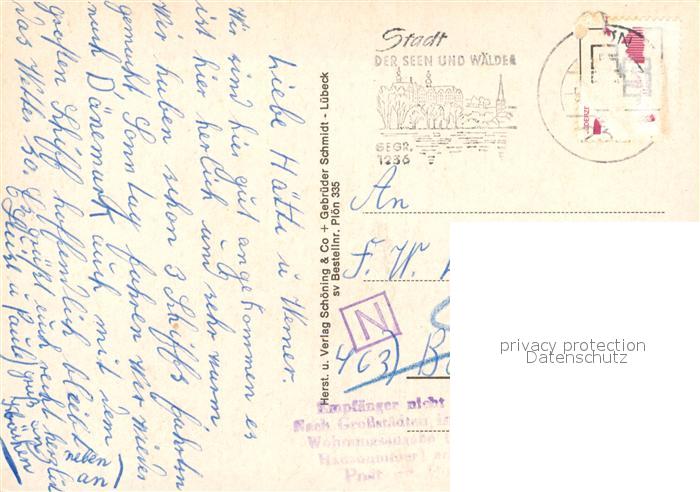 Liebe Hätti u Werner.
Wir sind hier gut angekommen es
ist hier herlich und sehr warm
Wir haben schon 3 Schiffs fahrtin
gemacht, Sonntag fahren wir wieder
nach Dänemark auch mit dem
großen Schiff hoffendlich bleibt
das Wetter so. Es grüßt euch recht herzlich
u Paula
neben
an
Herst. u. Verlag Schöning & Co + Gebrüder Schmidt - Lübeck
sv Bestellnr. Plön 335
Stadt
DER SEEN UND WÄLDER
GEGR.
1236
An
F. W.
N
463)
Empfänger nicht
Nach Großstädten
Wohnungsangabe
Hausnummer)
Post
privacy protection
Datenschutz